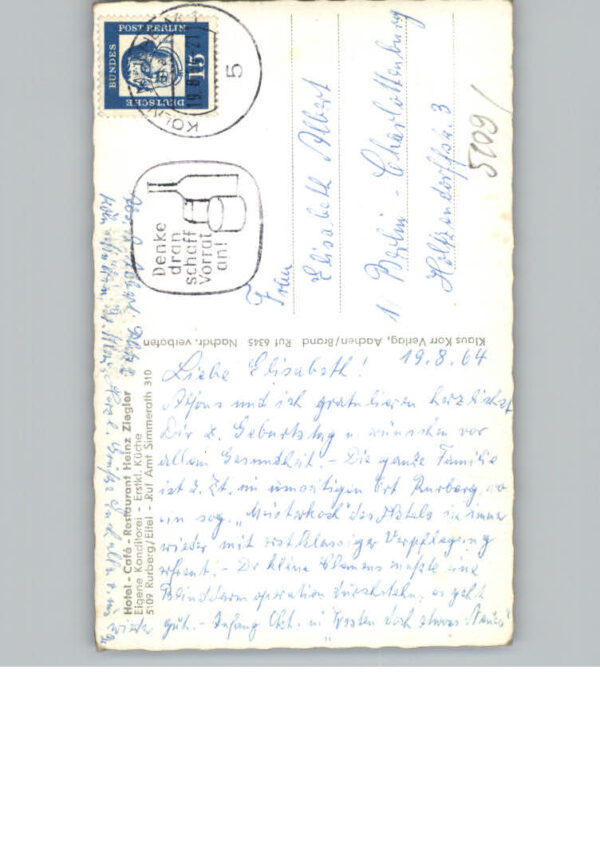 DEUTSCHE
BUNDES
POST BERLIN
15
KÖLN
5
Denke
dran
schaff
Vorrat
an!
5109/
Frau
Elisabeth Albert
1 Berlin - Charlottenburg
Holtzendorffstr. 3
Klaus Korr Verlag, Aachen/Brand Ruf 6345 Nachdr. verboten
Hotel - Café - Restaurant Heinz Ziegler
Eigene Konditorei - Erstkl. Küche
5109 Rurberg/Eifel - Ruf Amt Simmerath 310
19.8.64
Liebe Elisabeth!
Alfons und ich gratulieren herzlichst
Dir z. Geburtstag u. wünschen vor
allem Gesundheit. - Die ganze Familie
ist z. Zt. im Ort Rurberg, wo
ein sog. "Musterkoch" des Hotels sie immer
wieder mit erstklassiger Verpflegung
erfreut. - Der kleine Clemens mußte eine
Blinddarmoperation durchstehen, es geht
wieder gut. - Anfang Okt. im Westen doch etwas Neues